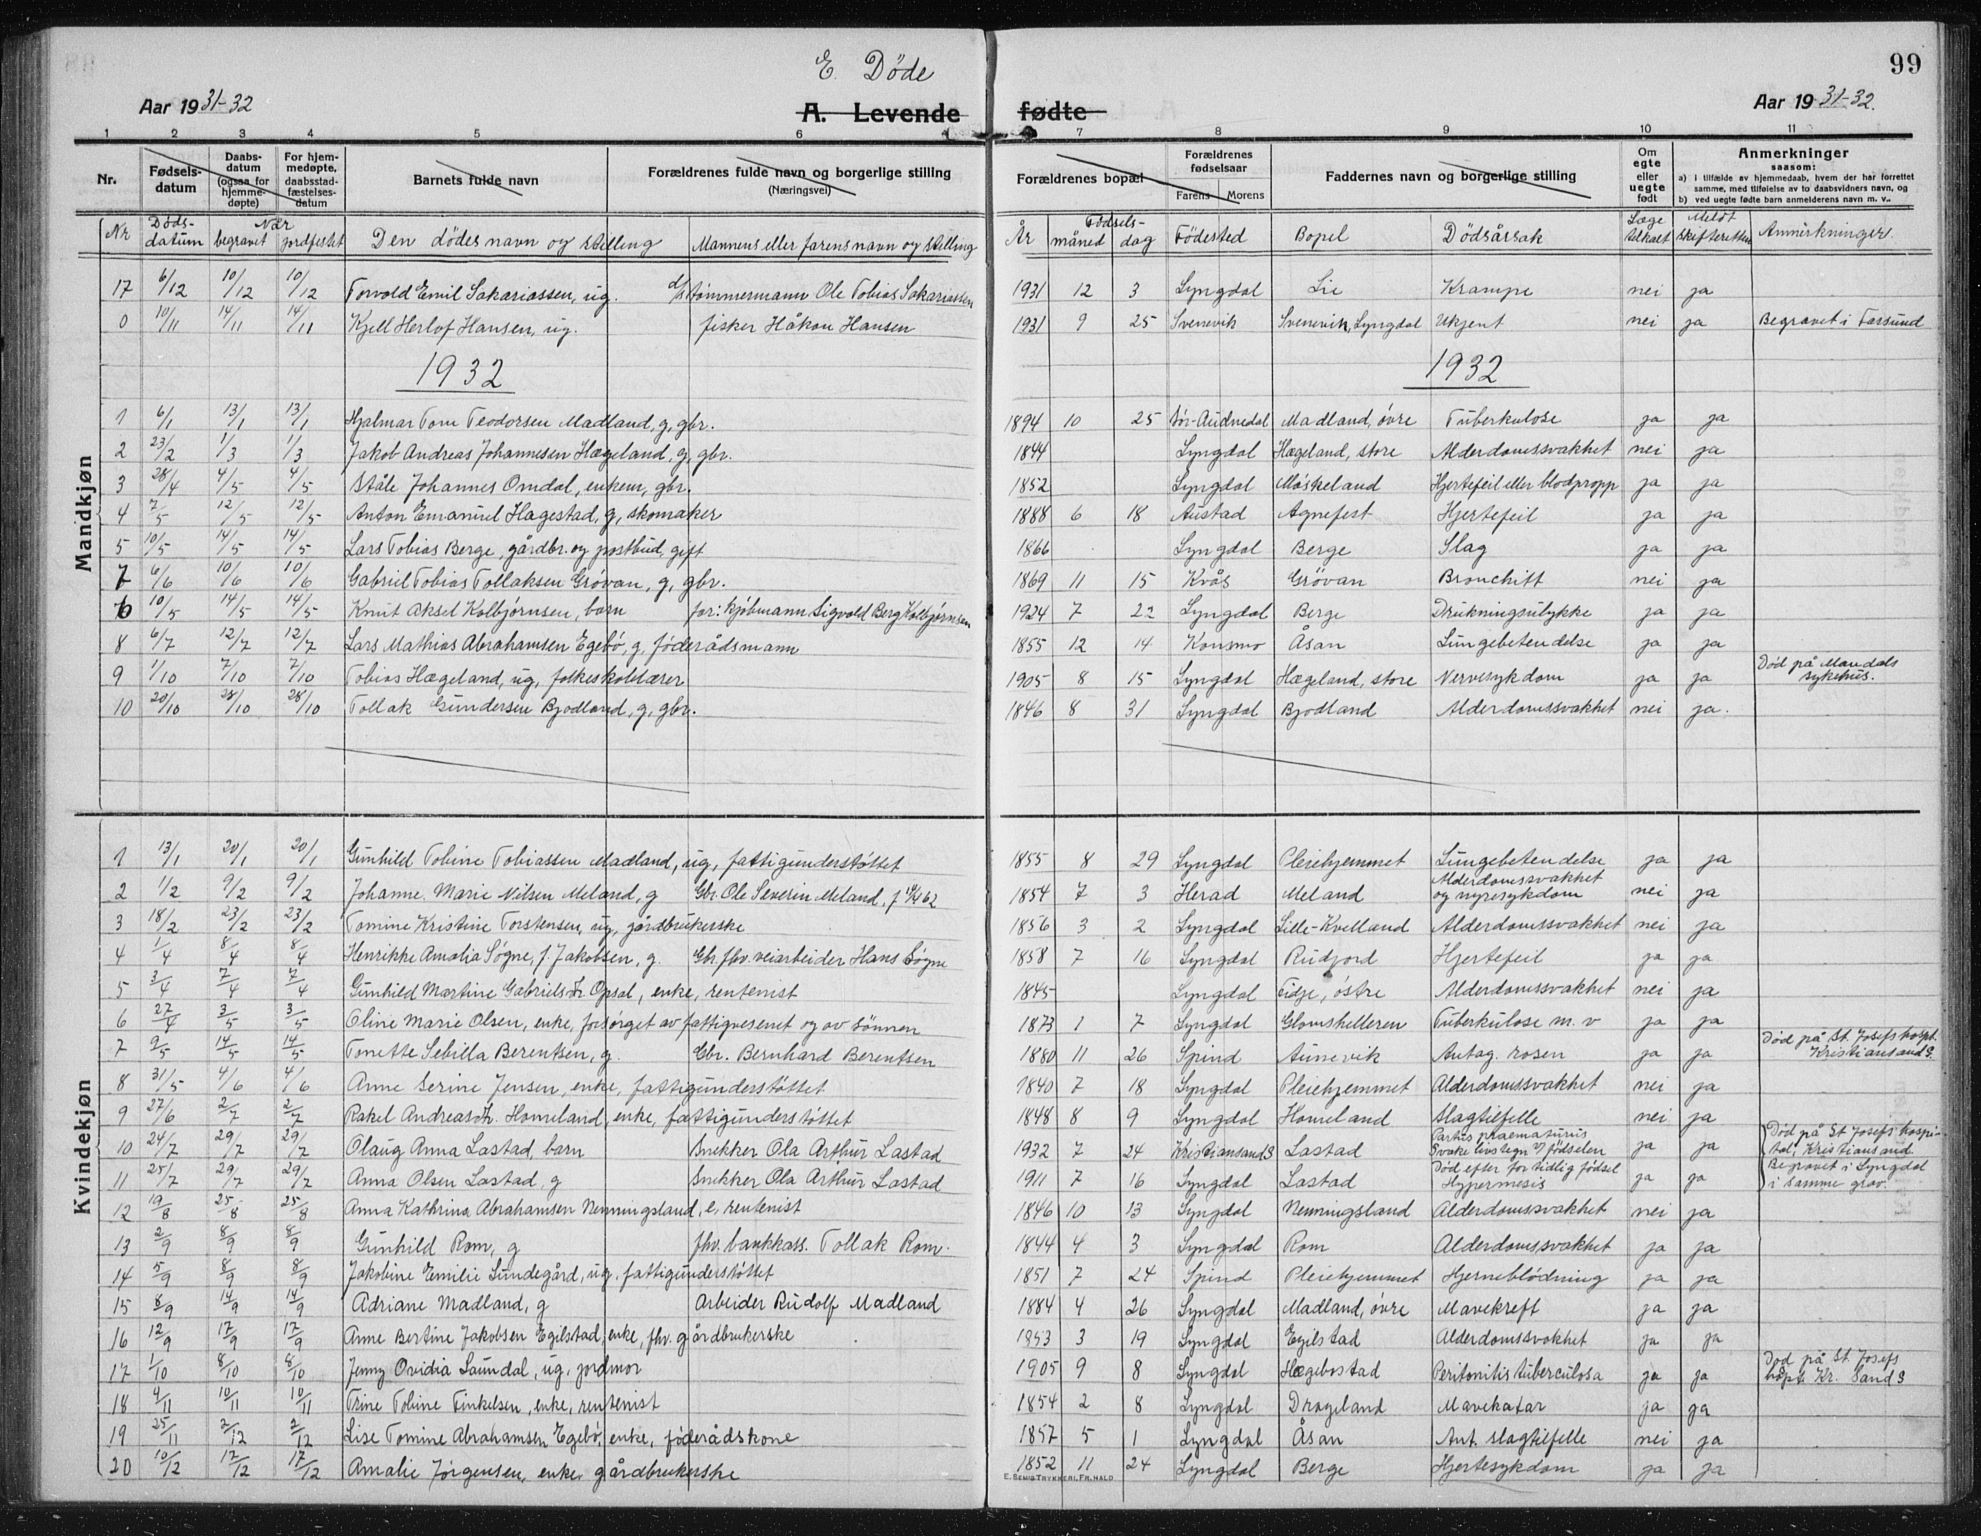 E. Døde
99
Aar 1931-32
A. Levende fødte
Aar 1931-32.
1 2 3 4 5 6 7 8 9 10 11
Nr. Fødselsdatum Daabsdatum (ogsaa for hjemmedøpte) For hjemmedøpte, daabsstadfæstelsesdatum Barnets fulde navn Forældrenes fulde navn og borgerlige stilling (Næringsvei) Forældrenes bopæl Forældrenes fødselsaar Farens Morens Faddernes navn og borgerlige stilling Om egte eller uegte født Anmerkninger saasom: a) i tilfælde av hjemmedaab, hvem der har forrettet samme, med tilføielse av to daabsvidners navn, og b) ved uegte fødte barn anmelderens navn m. v..
Nr Dødsdatum Når begravet jordfestet Den dødes navn og stilling Mannens eller farens navn og stilling År Fødsels- måned dag Fødested Bopel Dødsårsak Læge tilkalt Meldt skifteretten Anmerkninger.
Mandkjøn
17 6/12 10/12 10/12 Torvold Emil Sakariassen, ug. d/s tømmermann Ole Tobias Sakariassen 1931 12 3 Lyngdal Lie Krampe nei ja
0 10/11 14/11 14/11 Kjell Herlof Hansen, ug. fisker Håkon Hansen 1931 9 25 Svenevik Svenevik, Lyngdal Ukjent nei ja Begravet i Farsund
1932 1932
1 6/1 13/1 13/1 Hjalmar Tom Teodorsen Madland, g, gbr. 1894 10 25 Sør-Audnedal Madland, øvre Tuberkulose ja ja
2 23/2 1/3 1/3 Jakob Andreas Johannesen Hægeland, g, gbr. 1844 Lyngdal Hægeland, store Alderdomssvakhet nei ja
3 28/4 4/5 4/5 Ståle Johannes Omdal, enkem, gbr. 1852 Lyngdal Møskeland Hjertefeil eller blodpropp ja ja
4 7/5 12/5 12/5 Anton Emanuel Hagestad, g, skomaker 1888 6 18 Austad Agnefest Hjertefeil ja ja
5 10/5 14/5 14/5 Lars Tobias Berge, gårdbr. og postbud, gift 1866 Lyngdal Berge Slag ja ja
7 6/6 10/6 10/6 Gabriel Tobias Tollaksen Grøvan, g, gbr. 1869 11 15 Kvås Grøvan Bronchitt nei ja
6 10/5 14/5 14/5 Knut Aksel Kolbjørnsen, barn far: kjøbmann Sigvald Berg Kolbjørnsen 1924 7 22 Lyngdal Berge Drukningsulykke ja ja
8 6/7 12/7 12/7 Lars Mathias Abrahamsen Egebø, g, føderådsmann 1855 12 14 Konsmo Åsan Lungebetendelse ja ja
9 1/10 7/10 7/10 Tobias Hægeland, ug, folkeskolelærer 1905 8 15 Lyngdal Hægeland, store Nervesykdom ja ja Død på Mandals sykehus.
10 20/10 28/10 28/10 Tollak Gundersen Bjodland, g, gbr. 1846 8 31 Lyngdal Bjodland Alderdomssvakhet nei ja.
Kvindekjøn
1 13/1 20/1 20/1 Gunhild Tobine Tobiassen Madland, ug, fattigunderstøttet 1855 8 29 Lyngdal Pleiehjemmet Lungebetendelse ja ja
2 1/2 9/2 9/2 Johanne Marie Nilsen Meland, g Gbr. Ole Severin Meland, f 4/4 62 1854 7 3 Herad Meland Alderdomssvakhet og nyresykdom nei ja
3 18/2 23/2 23/2 Tomine Kristine Torstensen, ug, gårdbrukerske 1856 3 2 Lyngdal Lille-Kvelland Alderdomssvakhet nei ja
4 1/4 8/4 8/4 Henrikke Amalia Søgne, f. Jakobsen, g. Gbr. fhv. veiarbeider Hans Søgne 1858 7 16 Lyngdal Rudjord Hjertefeil ja ja
5 3/4 7/4 7/4 Gunhild Martine Gabrielsdtr. Opsal, enke, rentenist 1845 Lyngdal Fidje, østre Alderdomssvakhet nei ja
6 27/4 3/5 3/5 Oline Marie Olsen, enke, forsørget av fattigvesenet og av sønnen 1873 1 7 Lyngdal Glomskelleren Tuberkulose m. v ja ja
7 9/5 14/5 14/5 Tonette Sebilla Berentsen, g. Gbr. Bernhard Berentsen 1880 11 26 Spind Aunevik Antag. rosen ja ja Død på St. Josefs hospt. Kristiansand S.
8 31/5 4/6 4/6 Anne Serine Jensen, enke, fattigunderstøttet 1840 7 18 Lyngdal Pleiehjemmet Alderdomssvakhet nei ja
9 27/6 2/7 2/7 Rakel Andreasdtr. Homeland, enke, fattigunderstøttet 1848 8 9 Lyngdal Homeland Slagtilfelle nei ja
10 24/7 29/7 29/7 Olaug Anna Lastad, barn Snekker Ola Arthur Lastad 1932 7 24 Kristiansand S Lastad Partus praematurus Svake livstegn v/ fødselen ja ja Død på St Josefs hospital, Kristiansand
11 25/7 29/7 29/7 Anna Olsen Lastad, g Snekker Ola Arthur Lastad 1911 7 16 Lyngdal Lastad Død efter for tidlig fødsel Hypermesis ja ja Begravet i Lyngdal i samme grav.
12 19/8 25/8 25/8 Anna Kathrina Abrahamsen Nenningsland, e, rentenist 1846 10 13 Lyngdal Nenningsland Alderdomssvakhet nei ja
13 2/9 8/9 8/9 Gunhild Rom, g fhv. bankkass. Tollak Rom. 1844 4 3 Lyngdal Rom Alderdomssvakhet ja ja
14 5/9 8/9 8/9 Jakobine Emilie Lundegård, ug, fattigunderstøttet 1851 7 24 Spind Pleiehjemmet Hjerneblødning ja ja
15 8/9 14/9 14/9 Adriane Madland, g Arbeider Rudolf Madland 1884 4 26 Lyngdal Madland, øvre Mavekreft ja ja
16 12/9 17/9 17/9 Anne Bertine Jakobsen Egilstad, enke, fhv. gårdbrukerske 1853 3 19 Lyngdal Egilstad Alderdomssvakhet ja ja
17 1/10 8/10 8/10 Jenny Ovidia Laundal, ug, jordmor 1905 9 8 Lyngdal Hægebostad Peritonitis tuberculosa ja ja Død på St. Josefs hospt. Kr. Sand S
18 4/11 10/11 10/11 Trine Tobine Tinkelsen, enke, rentenist 1854 2 8 Lyngdal Drageland Mavekatar ja ja
19 25/11 2/12 2/12 Lise Tomine Abrahamsen Egebø, enke, føderådskone 1857 5 1 Lyngdal Åsan Ant. slagtilfelle nei ja
20 10/12 17/12 17/12 Amalie Jørgensen, enke, gårdbrukerske 1852 11 24 Lyngdal Berge Hjertesykdom ja ja
E. SEMS TRYKKERI, FR.HALD